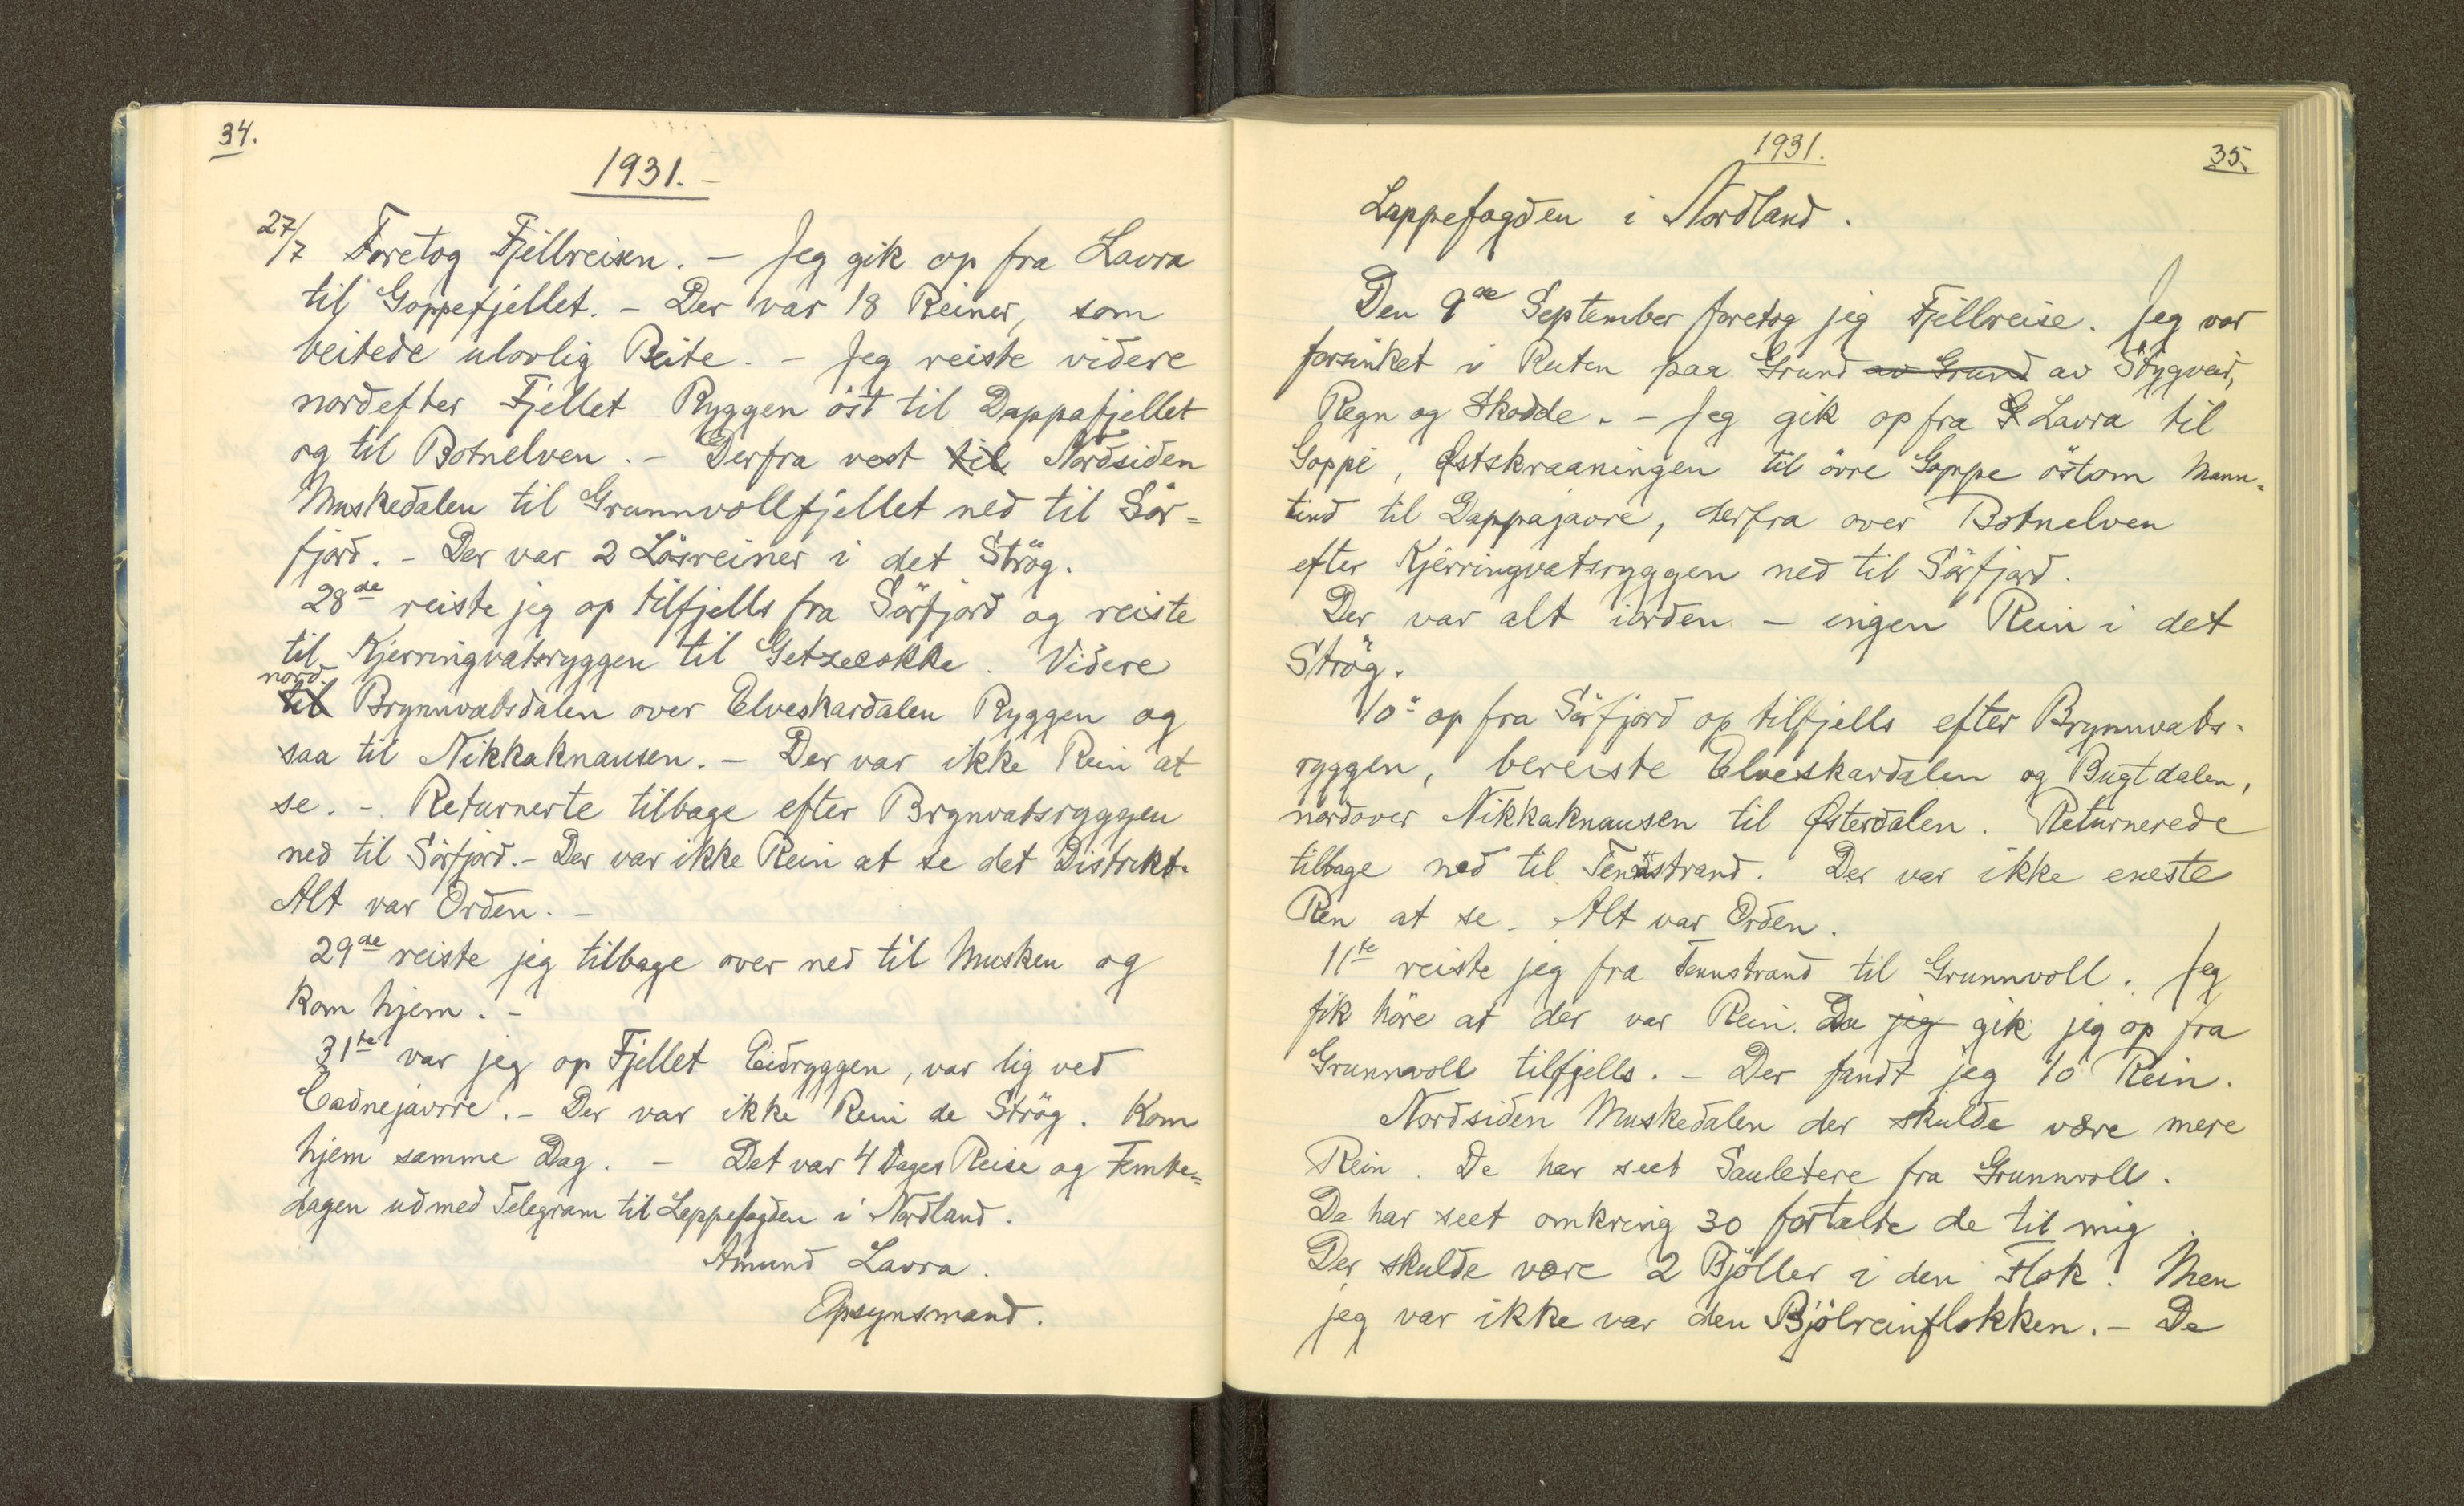 34.
1931. –
27/7 Foretog Fjellreisen. – Jeg gik op fra Lavra
til Goppefjellet. – Der var 18 Reiner, som
beitede ulovlig Beite. – Jeg reiste videre
nordefter Fjellet Ryggen öst til Dappafjellet
og til Botnelven. – Derfra vest til Nordsiden
Muskedalen til Grunnvollfjellet ned til Sör=
fjord. – Der var 2 Lösreiner i det Strög.
28de reiste jeg op tilfjells fra Sörfjord og reiste
til Kjerringvatsryggen til Getzecokka. Videre
nord.
til Brynnvatsdalen over Elveskardalen Ryggen og
saa til Nikkaknausen. – Der var ikke Rein at
se. – Returnerte tilbage efter Brynvatsryggen
ned til Sörfjord. – Der var ikke Rein at se det Distrikt.
Alt var Orden. –
29de reiste jeg tilbage over ned til Musken og
kom hjem. –
31te var jeg op Fjellet Eidryggen, var lig ved
Eadnejavrre. – Der var ikke Rein de Strög. Kom
hjem samme Dag. – Det var 4 Dages Reise og Femte=
dagen ud med Telegram til Lappefogden i Nordland.
Amund Lavra.
Opsynsmand.
1931.
35.
Lappefogden i Nordland.
Den 9de September foretog jeg Fjellreise. Jeg var
forsinket i Ruten paa Grund av Grund av Stygveir,
Regn og Skodde. – Jeg gik op fra G Lavra til
Goppe, Østskraaningen til övre Goppe östom Mann=
tind til Dappajavre, derfra over Botnelven
efter Kjerringvatsryggen ned til Sörfjord.
Der var alt iorden – ingen Rein i det
Strög.
10" op fra Sörfjord op tilfjells efter Brynnvats-
ryggen, bereiste Elveskardalen og Bugtdalen,
nordover Nikkaknausen til Østerdalen. Returnerede
tilbage ned til Tennstrand. Der var ikke eneste
Ren at se. Alt var Orden.
11te reiste jeg fra Tennstrand til Grunnvoll. Jeg
fik höre at der var Rein. Da jeg gik jeg op fra
Grunnvoll tilfjells. – Der fandt jeg 10 Rein.
Nordsiden Muskedalen der skulde være mere
Rein. De har seet Sauletere fra Grunnvoll.
De har seet omkring 30 fortalte de til mig.
Der skulde være 2 Bjöller i den Flok. Men
jeg var ikke var den Bjölreinflokken. – De